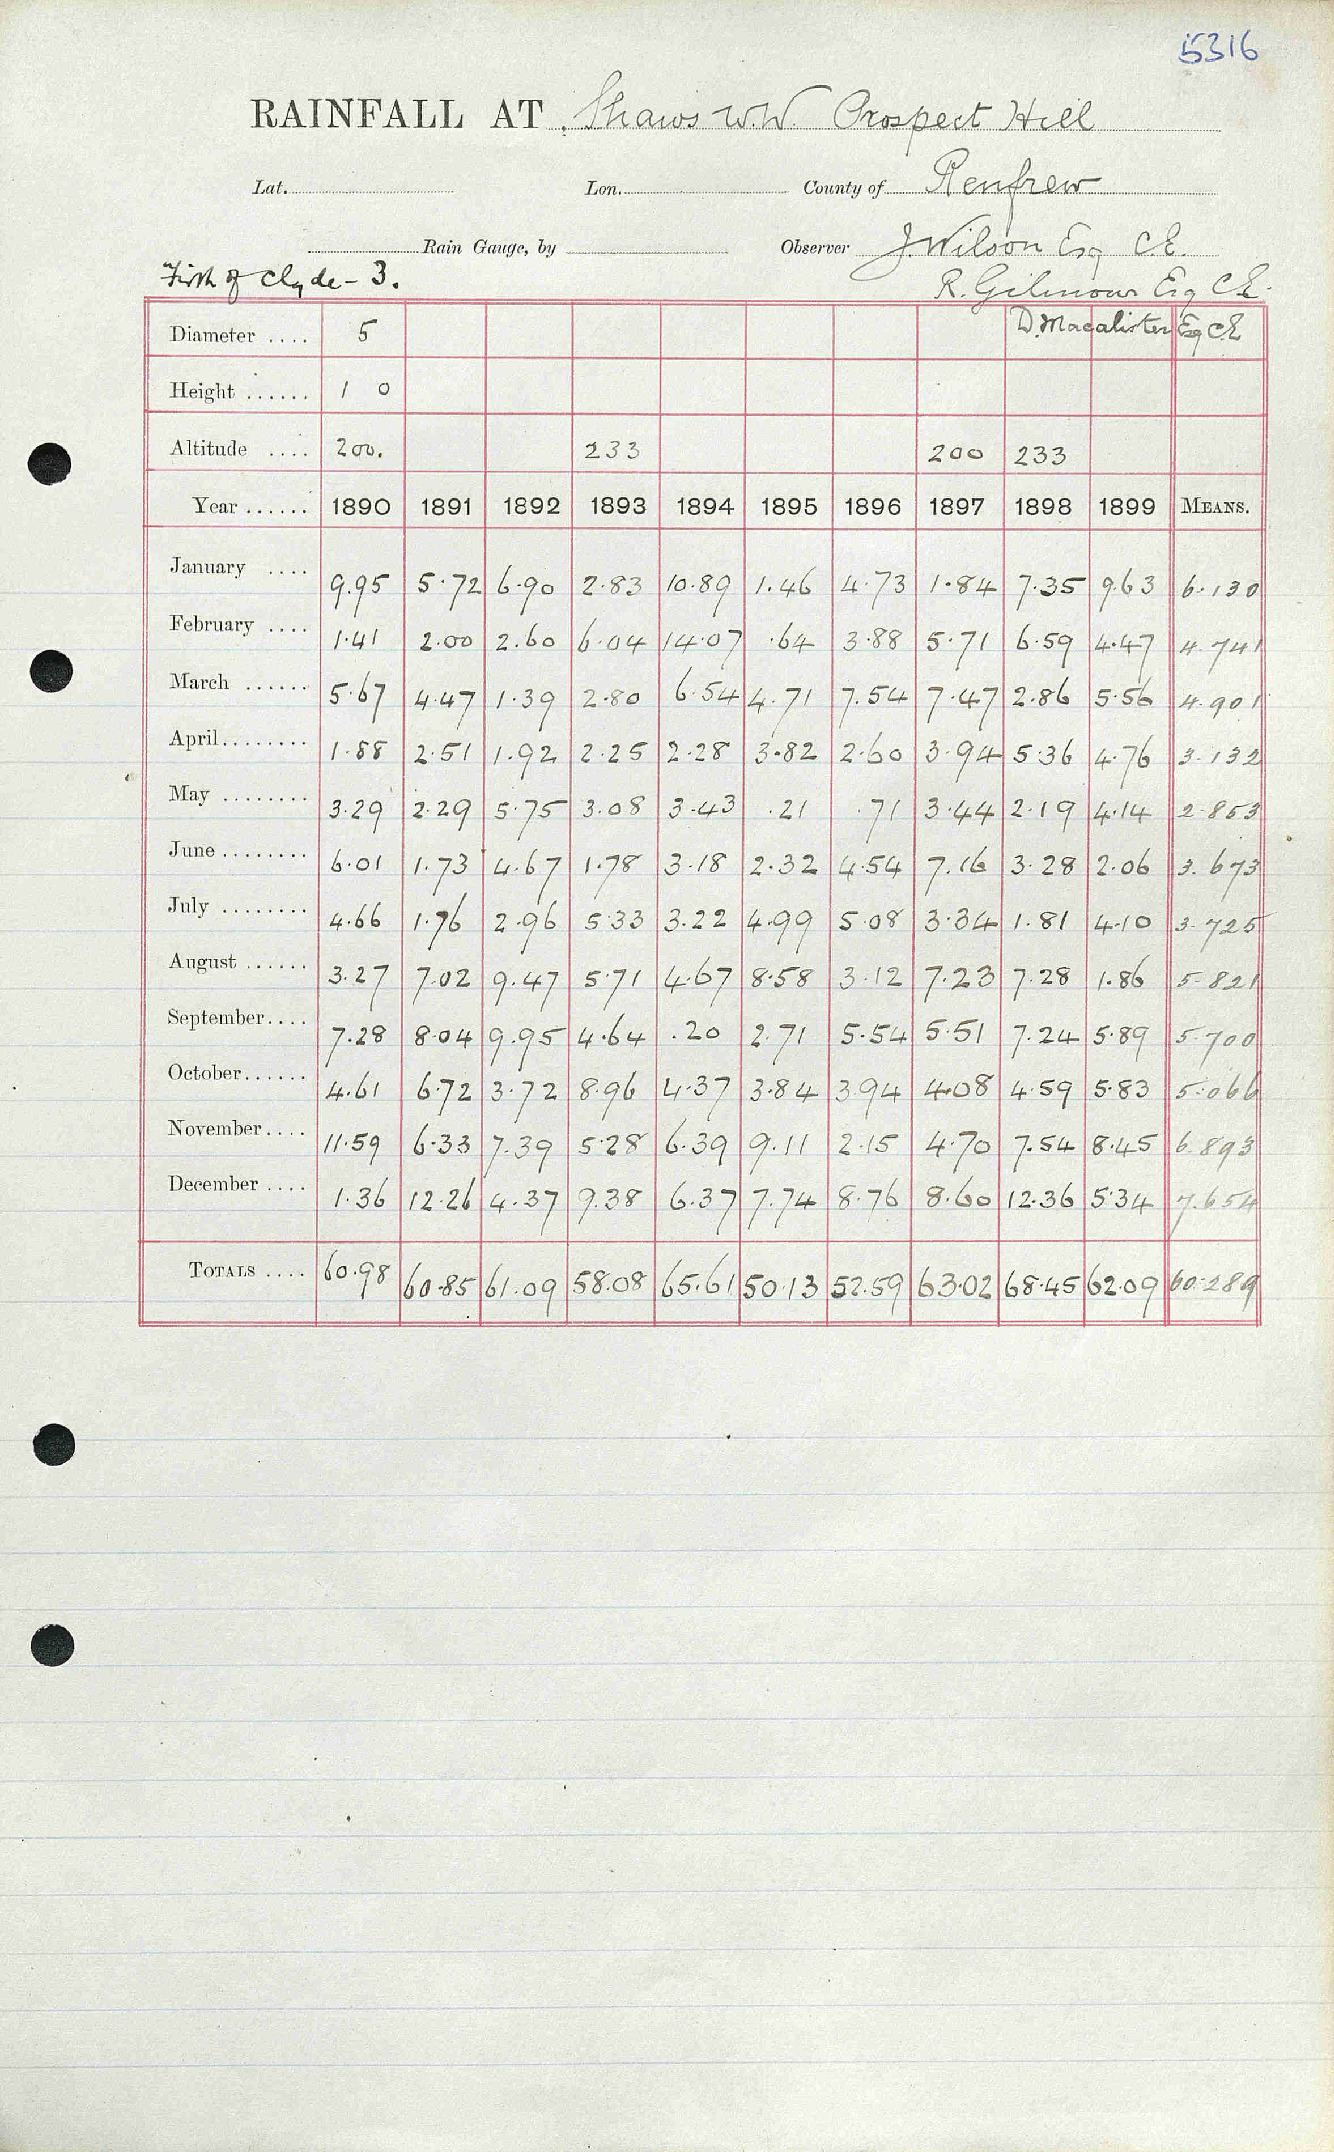 5316
RAINFALL AT Shaws W.W. Prospect Hill
Lat. Lon. County of Renfrew
Rain Gauge, by Observer J. Wilson Esq C.E.
Firth of Clyde - 3. R. Gilmour Esq C.E.
Diameter .... 5 D. Macalister Esq C.E
Height ...... 1 0
Altitude .... 200. 233 200 233
Year ...... 1890 1891 1892 1893 1894 1895 1896 1897 1898 1899 MEANS.
January .... 9.95 5.72 6.90 2.83 10.89 1.46 4.73 1.84 7.35 9.63 6.130
February .... 1.41 2.00 2.60 6.04 14.07 .64 3.88 5.71 6.59 4.47 4.741
March ...... 5.67 4.47 1.39 2.80 6.54 4.71 7.54 7.47 2.86 5.56 4.901
April........ 1.88 2.51 1.92 2.25 2.28 3.82 2.60 3.94 5.36 4.76 3.132
May ........ 3.29 2.29 5.75 3.08 3.43 .21 .71 3.44 2.19 4.14 2.853
June ........ 6.01 1.73 4.67 1.78 3.18 2.32 4.54 7.16 3.28 2.06 3.673
July ........ 4.66 1.76 2.96 5.33 3.22 4.99 5.08 3.34 1.81 4.10 3.725
August ...... 3.27 7.02 9.47 5.71 4.67 8.58 3.12 7.23 7.28 1.86 5.821
September.... 7.28 8.04 9.95 4.64 .20 2.71 5.54 5.51 7.24 5.89 5.700
October...... 4.61 6.72 3.72 8.96 4.37 3.84 3.94 4.08 4.59 5.83 5.066
November.... 11.59 6.33 7.39 5.28 6.39 9.11 2.15 4.70 7.54 8.45 6.893
December .... 1.36 12.26 4.37 9.38 6.37 7.74 8.76 8.60 12.36 5.34 7.654
TOTALS .... 60.98 60.85 61.09 58.08 65.61 50.13 52.59 63.02 68.45 62.09 60.289